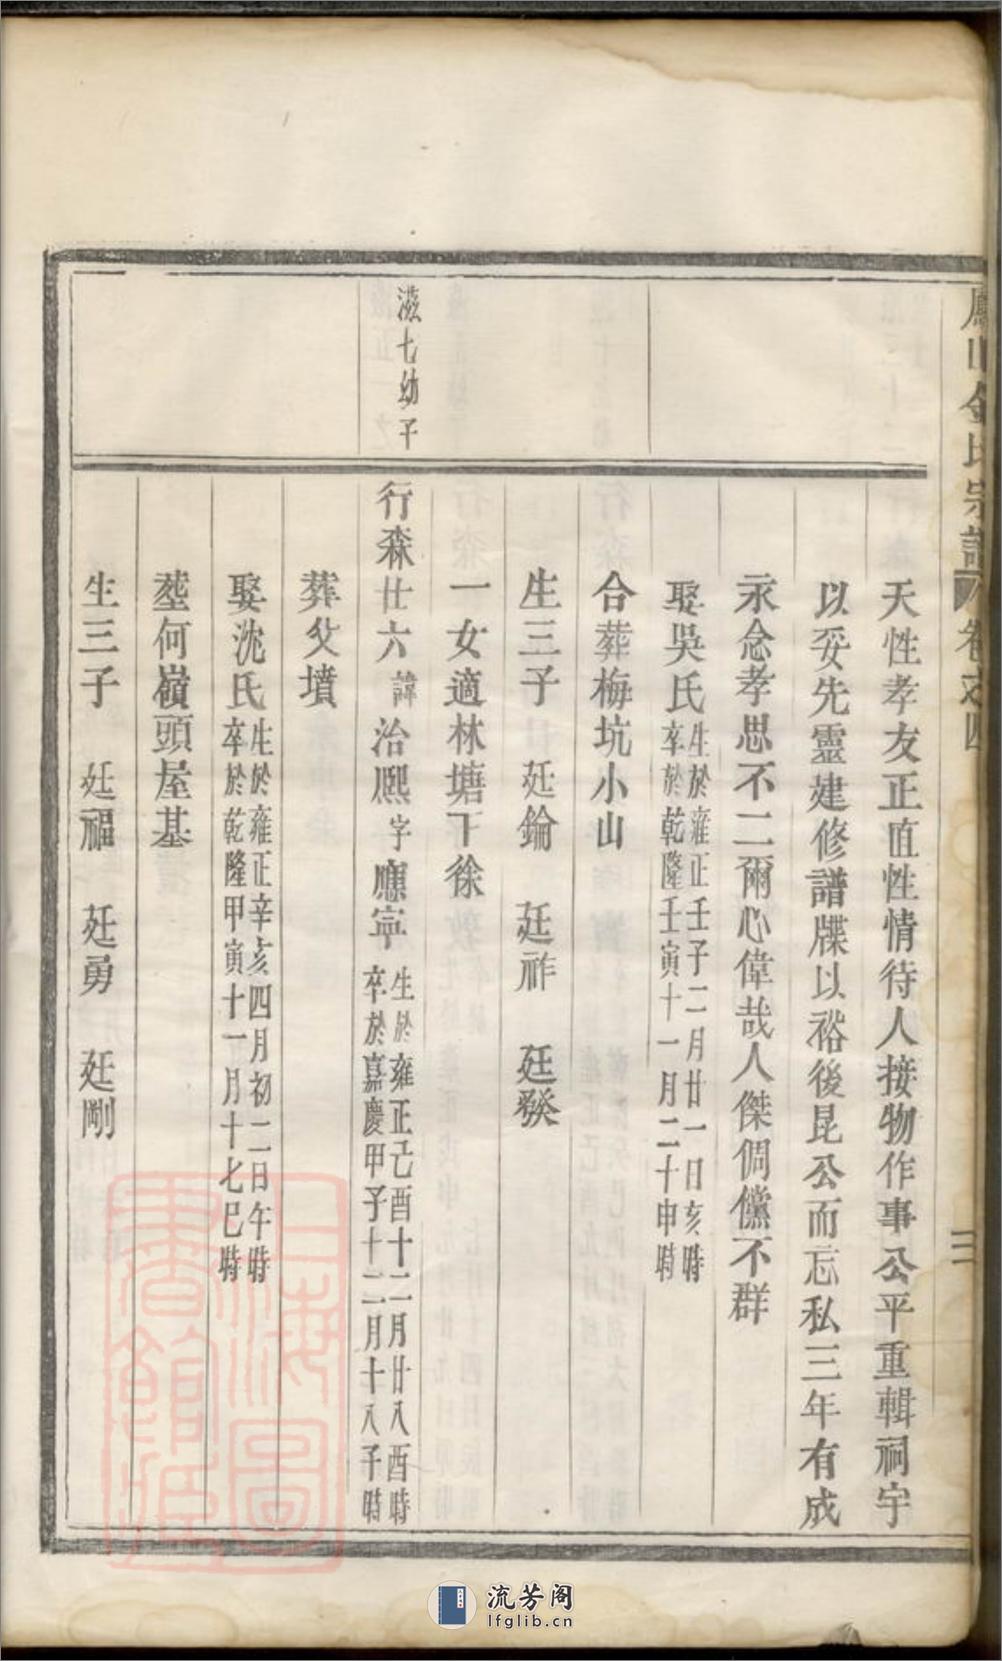 鳳山金氏宗譜 卷之四 三
天性孝友正直性情待人接物作事公平重輯祠宇
以妥先靈建修譜牒以裕後昆公而忘私三年有成
永念孝思不二爾心偉哉人傑倜儻不群
娶吳氏生於雍正壬子二月廿一日亥時
卒於乾隆壬寅十一月二十申時
合葬梅坑小山
生三子 廷錀 廷祚 廷發
一女適林塘下徐
滋七幼子
行森仕六諱治熙字應寧生於雍正己酉十二月廿八酉時
卒於嘉慶甲子十二月十八子時
葬父墳
娶沈氏生於雍正辛亥四月初二日午時
卒於乾隆甲寅十一月十七巳時
塟何嶺頭屋基
生三子 廷福 廷勇 廷剛
上海圖書館藏
流芳阁
lfglib.cn